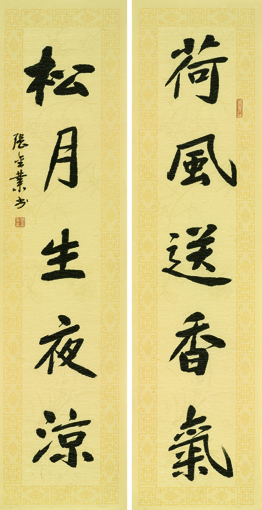 荷風送香氣
松月生夜涼
張金業书